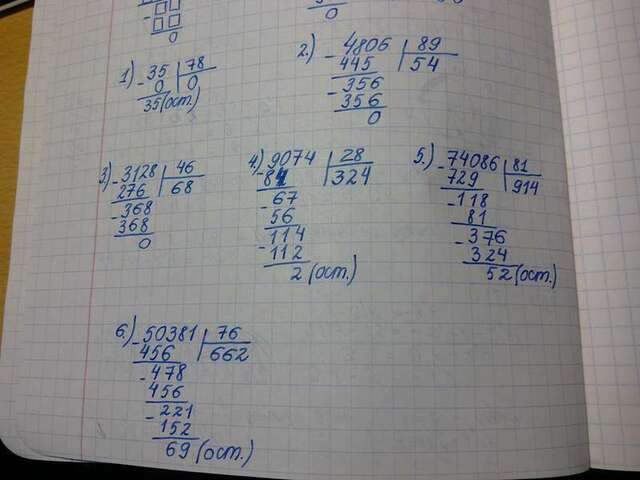 0
0
1) 35 | 78
- 0 | 0
35 (ост.)
2.) - 4806 | 89
445 | 54
- 356
356
0
3) - 3128 | 46
276 | 68
- 368
368
0
4.) 9074 | 28
- 84 | 324
- 67
56
- 114
112
2 (ост.)
5.) - 74086 | 81
729 | 914
- 118
81
- 376
324
52 (ост.)
6.) - 50381 | 76
456 | 662
- 478
456
- 221
152
69 (ост.)